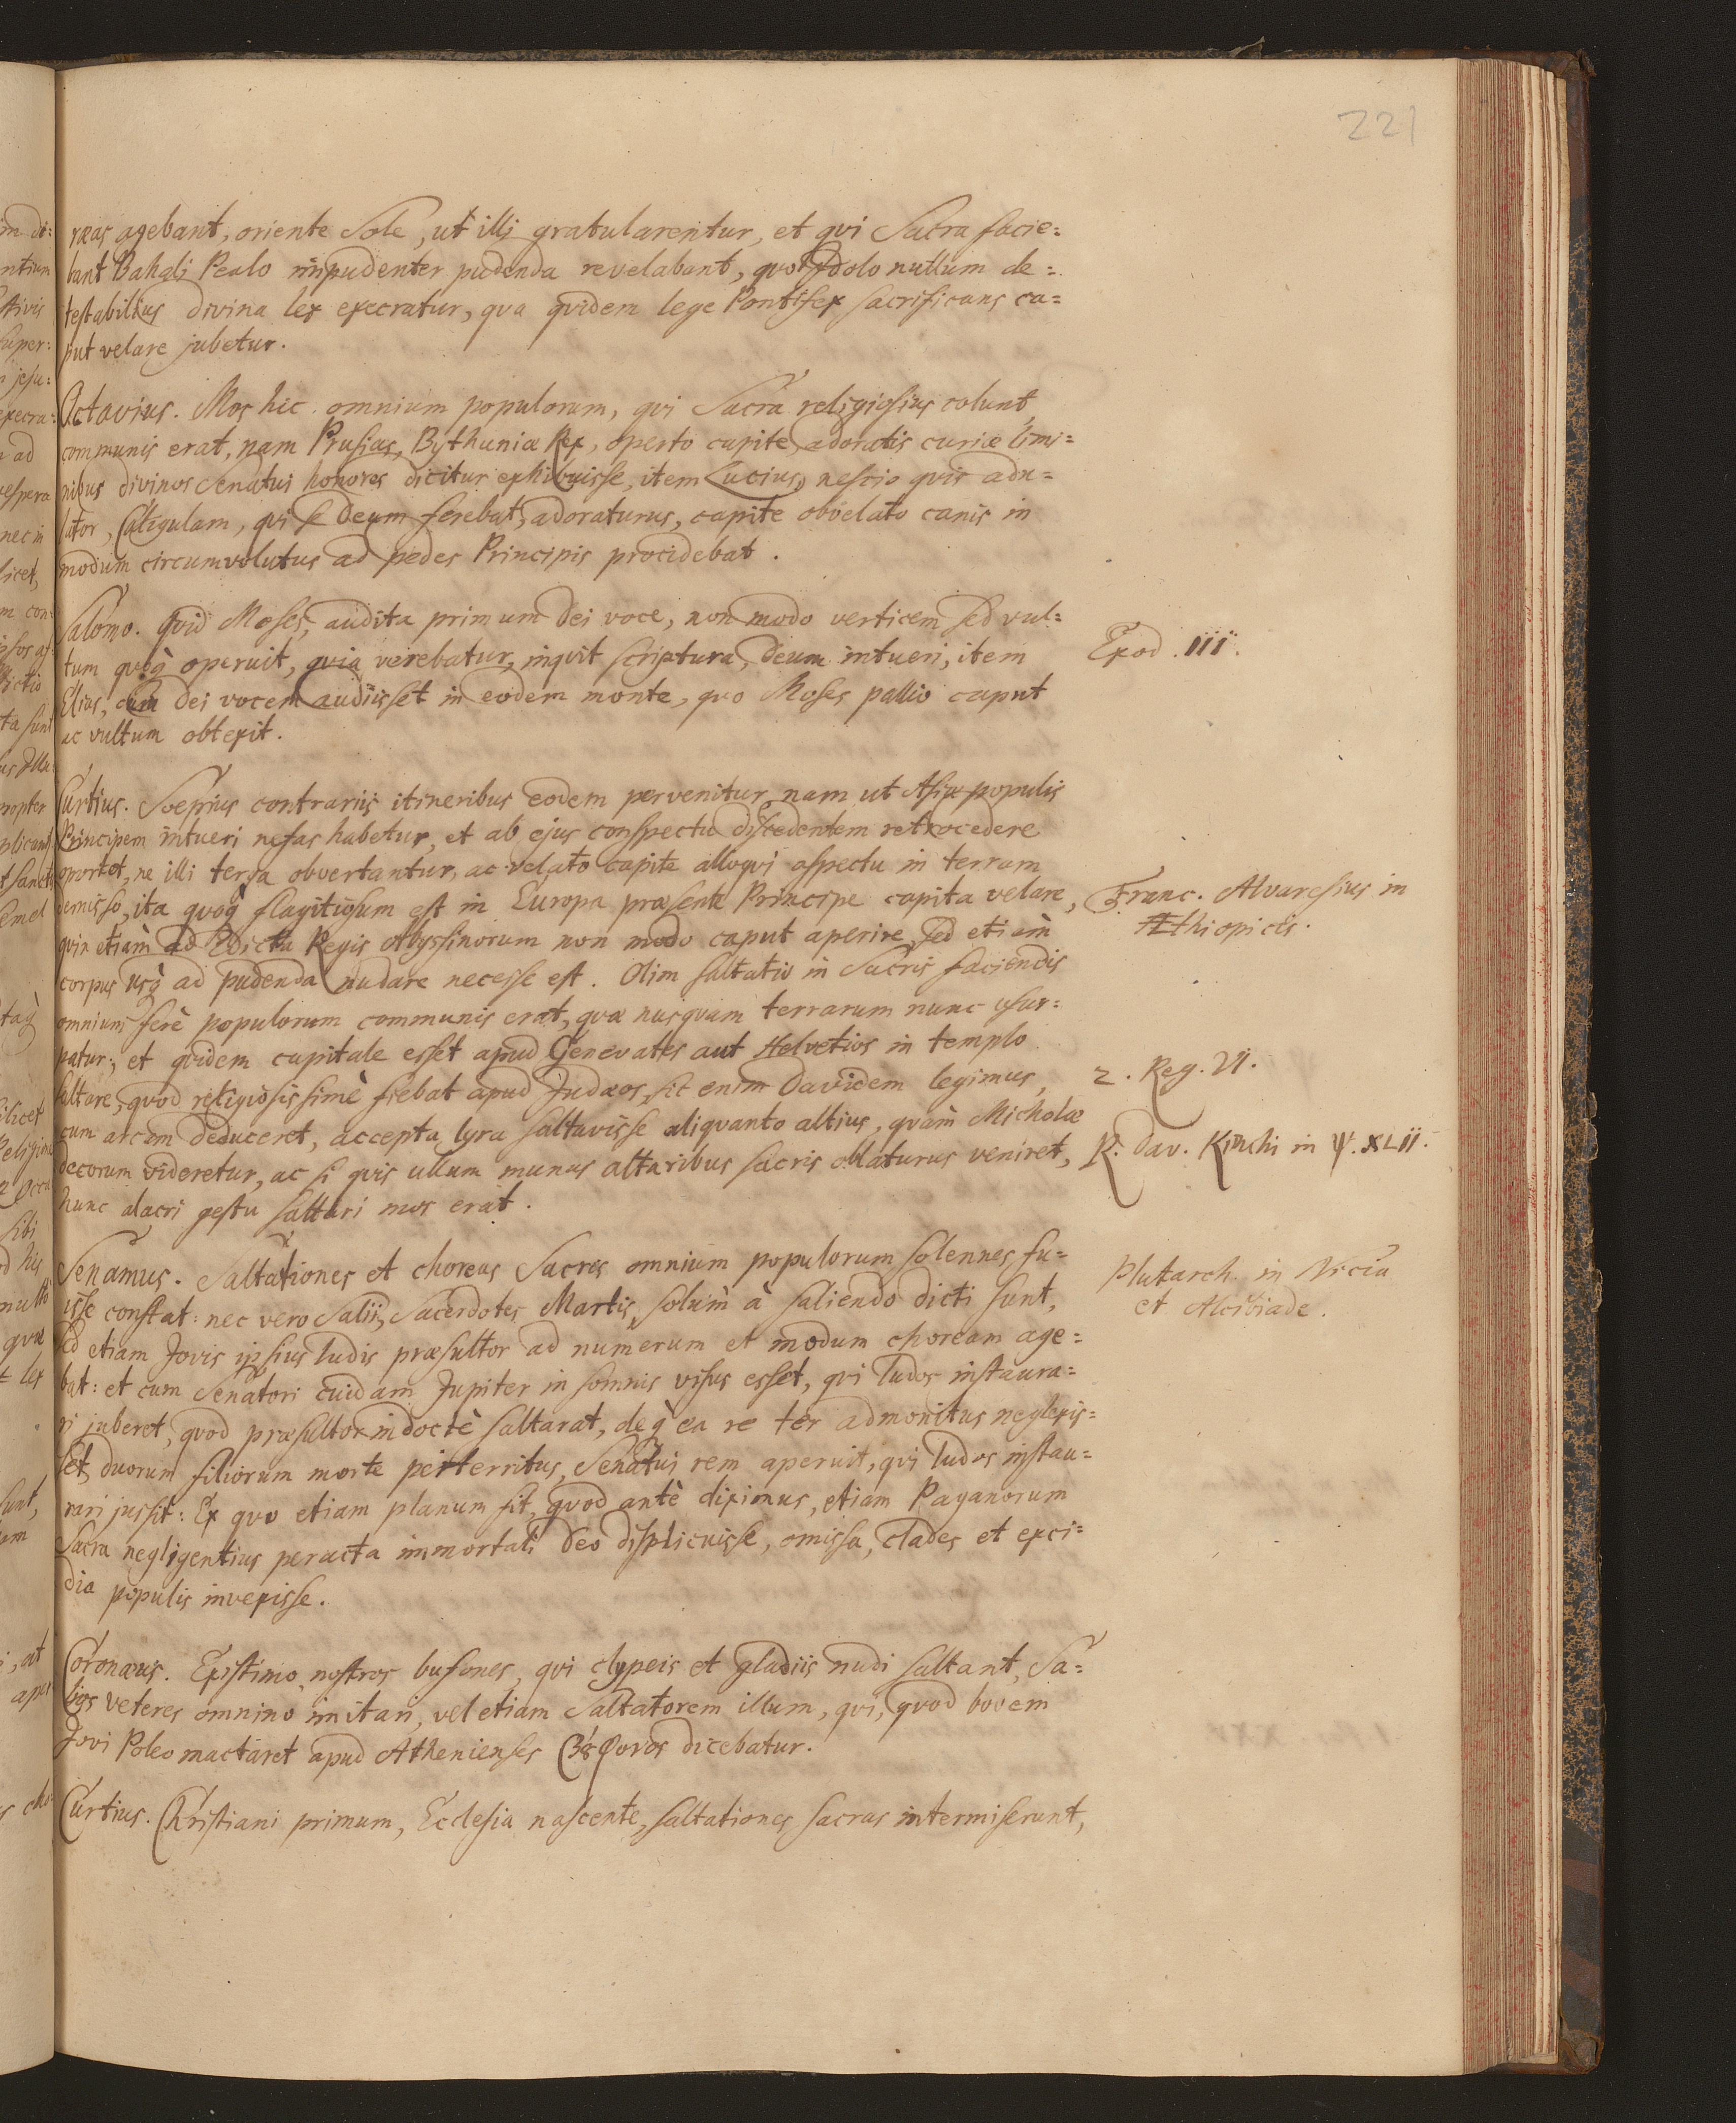 221
ræas agebant, oriente Sole, ut illi gratularentur, et qvi Sacra facie=
bant Bahali Pealo impudenter pudenda revelabant, qvo Idolo nullum de=
testabilius divina lex execratur, qva qvidem lege Pontifex sacrificans ca=
put velare jubetur.
Octavius. Mos hic omnium populorum, qvi Sacra religiosius colunt,
communis erat, nam Prusias, Bythuniæ Rex, operto capite, adoratis curiæ limi=
nibus divinos Senatui honores dicitur exhibuisse, item Lucius, nescio qvis adu=
lator, Caligulam, qvi se Deum ferebat, adoraturus, capite obvelato canis in
modum circumvolutus ad pedes Principis procidebat.
Salomo. Qvid Moses, audita primum Dei voce, non modo verticem sed vul=
tum qvoq̀ operuit, qvia verebatur, inqvit scriptura, Deum intueri, item
Exod. III.
Elias, cum Dei vocem audiisset in eodem monte, qvo Moses pallio caput
ac vultum obtexit.
Curtius. Soepius contrariis itineribus eodem pervenitur, nam ut Asiæ populis
Principem intueri nefas habetur, et ab ejus conspectu discedentem retrocedere
oportet, ne illi terga obvertantur, ac velato capite alloqvi aspectu in terram
demisso, ita qvoq̀ flagitiosum est in Europa præsente Principe capita velare,
Franc. Alvaresius in
Æthiopicis.
qvin etiam ad Edicta Regis Abyssinorum non modo caput aperire, sed etiam
corpus usq̀ ad pudenda nudare necesse est. Olim saltatio in Sacris faciendis
omnium ferè populorum communis erat, qvæ nusqvam terrarum nunc usur=
patur; et qvidem capitale esset apud Genevates aut Helvetios in templo
saltare, qvod religiosissimè fiebat apud Judæos, sic enim Davidem legimus,
2. Reg. VI.
cum arcam deduceret, accepta lyra saltavisse aliqvanto altius, qvam Micholæ
decorum videretur, ac si qvis ullum munus altaribus sacris oblaturus veniret,
R. Dav. Kimhi in ψ. XLII.
hunc alacri gestu saltari mos erat.
Senamus. Saltationes et choreas Sacras omnium populorum solennes fu=
isse constat: nec vero Salii, Sacerdotes Martis, solum à saliendo dicti sunt,
Plutarch. in Nicia
et Alcibiade.
sed etiam Jovis ipsius ludis præsultor ad numerum et modum choream age=
bat: et cum Senatori cuidam Jupiter in somnis visus esset, qvi ludos instaura=
ri juberet, qvod præsultor indoctè saltarat, deq̀ ea re ter admonitus neglexis=
set, duorum filiorum morte perterritus, Senatui rem aperuit, qvi ludos instau=
rari jussit: Ex qvo etiam planum fit, qvod antè diximus, etiam Paganorum
Sacra negligentius peracta immortali Deo displicuisse, omissa, clades et exci=
dia populis invexisse.
Coronæus. Existimo, nostros bufones, qvi clypeis et gladiis nudi saltant, Sa=
lios veteres omnino imitari, vel etiam Saltatorem illum, qvi, qvod bovem
Jovi Poleo mactaret apud Athenienses Βȣφονος dicebatur.
Curtius. Christiani primum, Ecclesia nascente, saltationes sacras intermiserunt,